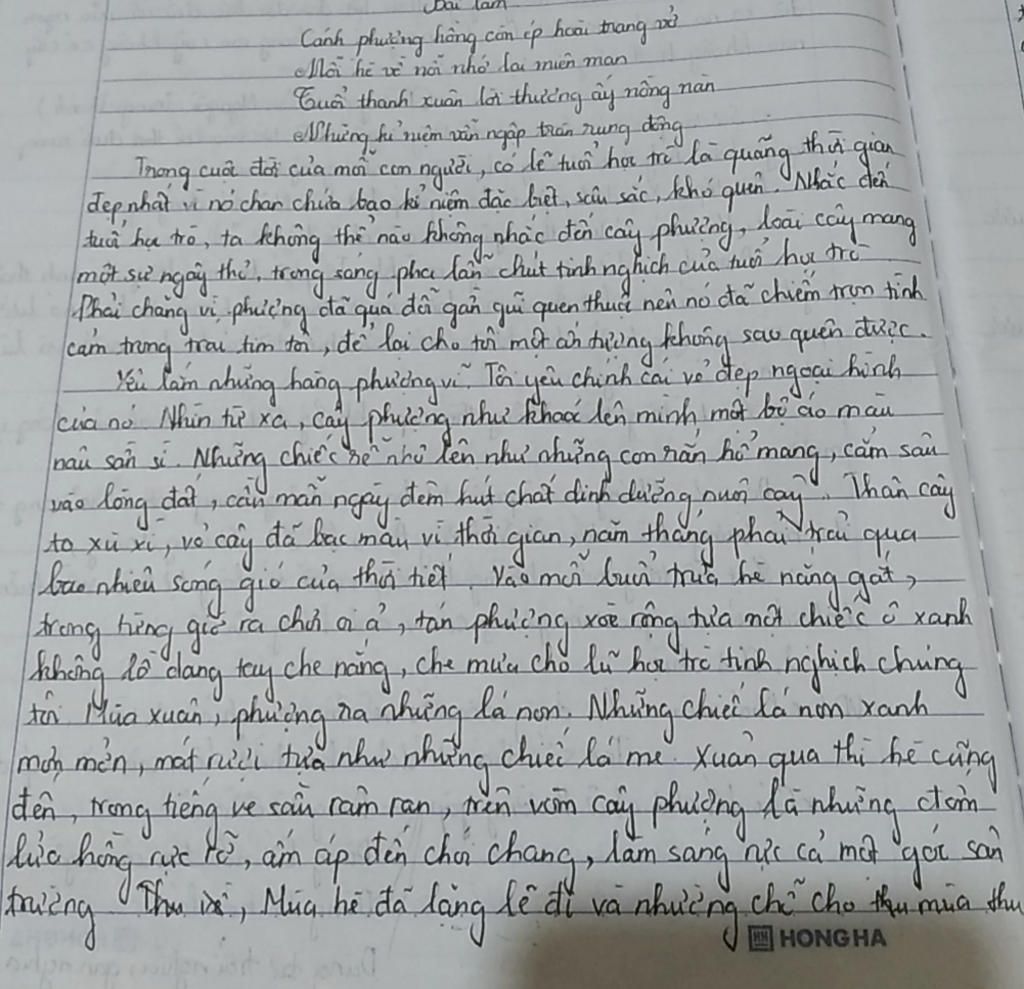 Bài làm
Cánh phượng hồng còn ép hoài trang vở
Mỗi hè về nỗi nhớ lại miên man
Tuổi thanh xuân lời thương ấy nồng nàn
Những kỉ niệm vẫn ngập tràn rung động
Trong cuộc đời của mỗi con người, có lẽ tuổi học trò là quãng thời gian
đẹp nhất vì nó chan chứa bao kỉ niệm đặc biệt, sâu sắc, khó quên. Nhắc đến
tuổi học trò, ta không thể nào không nhắc đến cây phượng, loài cây mang
một sự ngây thơ, trong sáng pha lẫn chút tinh nghịch của tuổi học trò
Phải chăng vì phượng đã quá đỗi gần gũi quen thuộc nên nó đã chiếm trọn tình
cảm trong trái tim tôi, để lại cho tôi một ấn tượng không sao quên được.
Yêu lắm những hàng phượng vĩ. Tôi yêu chính cái vẻ đẹp ngoại hình
của nó. Nhìn từ xa, cây phượng như khoác lên mình một bộ áo màu
nâu sần sì. Những chiếc rễ nhô lên như những con rắn hổ mang, cắm sâu
vào lòng đất, cần mẫn ngày đêm hút chất dinh dưỡng nuôi cây. Thân cây
to xù xì, vỏ cây đã bạc màu vì thời gian, năm tháng phải trải qua
bao nhiêu sóng gió của thời tiết. Vào mỗi buổi trưa hè nắng gắt,
trong tiếng giờ ra chơi oi ả, tán phượng xoè rộng tựa một chiếc ô xanh
khổng lồ dang tay che nắng, che mưa cho lũ học trò tinh nghịch chúng
tôi Mùa xuân, phượng ra những lá non. Những chiếc lá non xanh
mơn mởn, mát rượi tựa như những chiếc lá me. Xuân qua thì hè cũng
đến, trong tiếng ve sầu râm ran, trên vòm cây phượng là những đốm
lửa hồng rực rỡ, ấm áp đến chói chang, làm sáng rực cả một góc sân
trường Thu về, Mùa hè đã lặng lẽ đi và nhường chỗ cho mùa thu
HH HONG HA